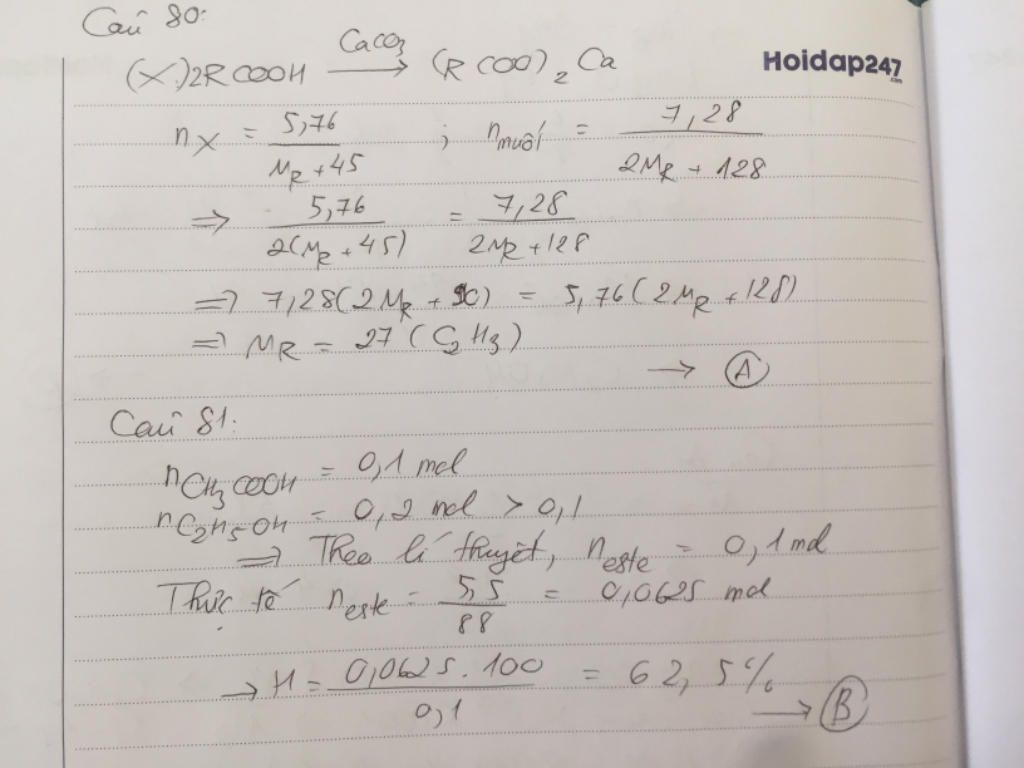 Câu 80:
Hoidap247
.com
(X) 2RCOOH —CaCO3→ (RCOO)2Ca
nX = 5,76 / (MR + 45) ; nmuối = 7,28 / (2MR + 128)
⇒ 5,76 / 2(MR + 45) = 7,28 / (2MR + 128)
⇒ 7,28(2MR + 90) = 5,76(2MR + 128)
⇒ MR = 27 (C2H3)
→ A
Câu 81:
nCH3COOH = 0,1 mol
nC2H5OH = 0,2 mol > 0,1
⇒ Theo lí thuyết, neste = 0,1 mol
Thực tế neste = 5,5 / 88 = 0,0625 mol
→ H = 0,0625 . 100 / 0,1 = 62,5%
→ B